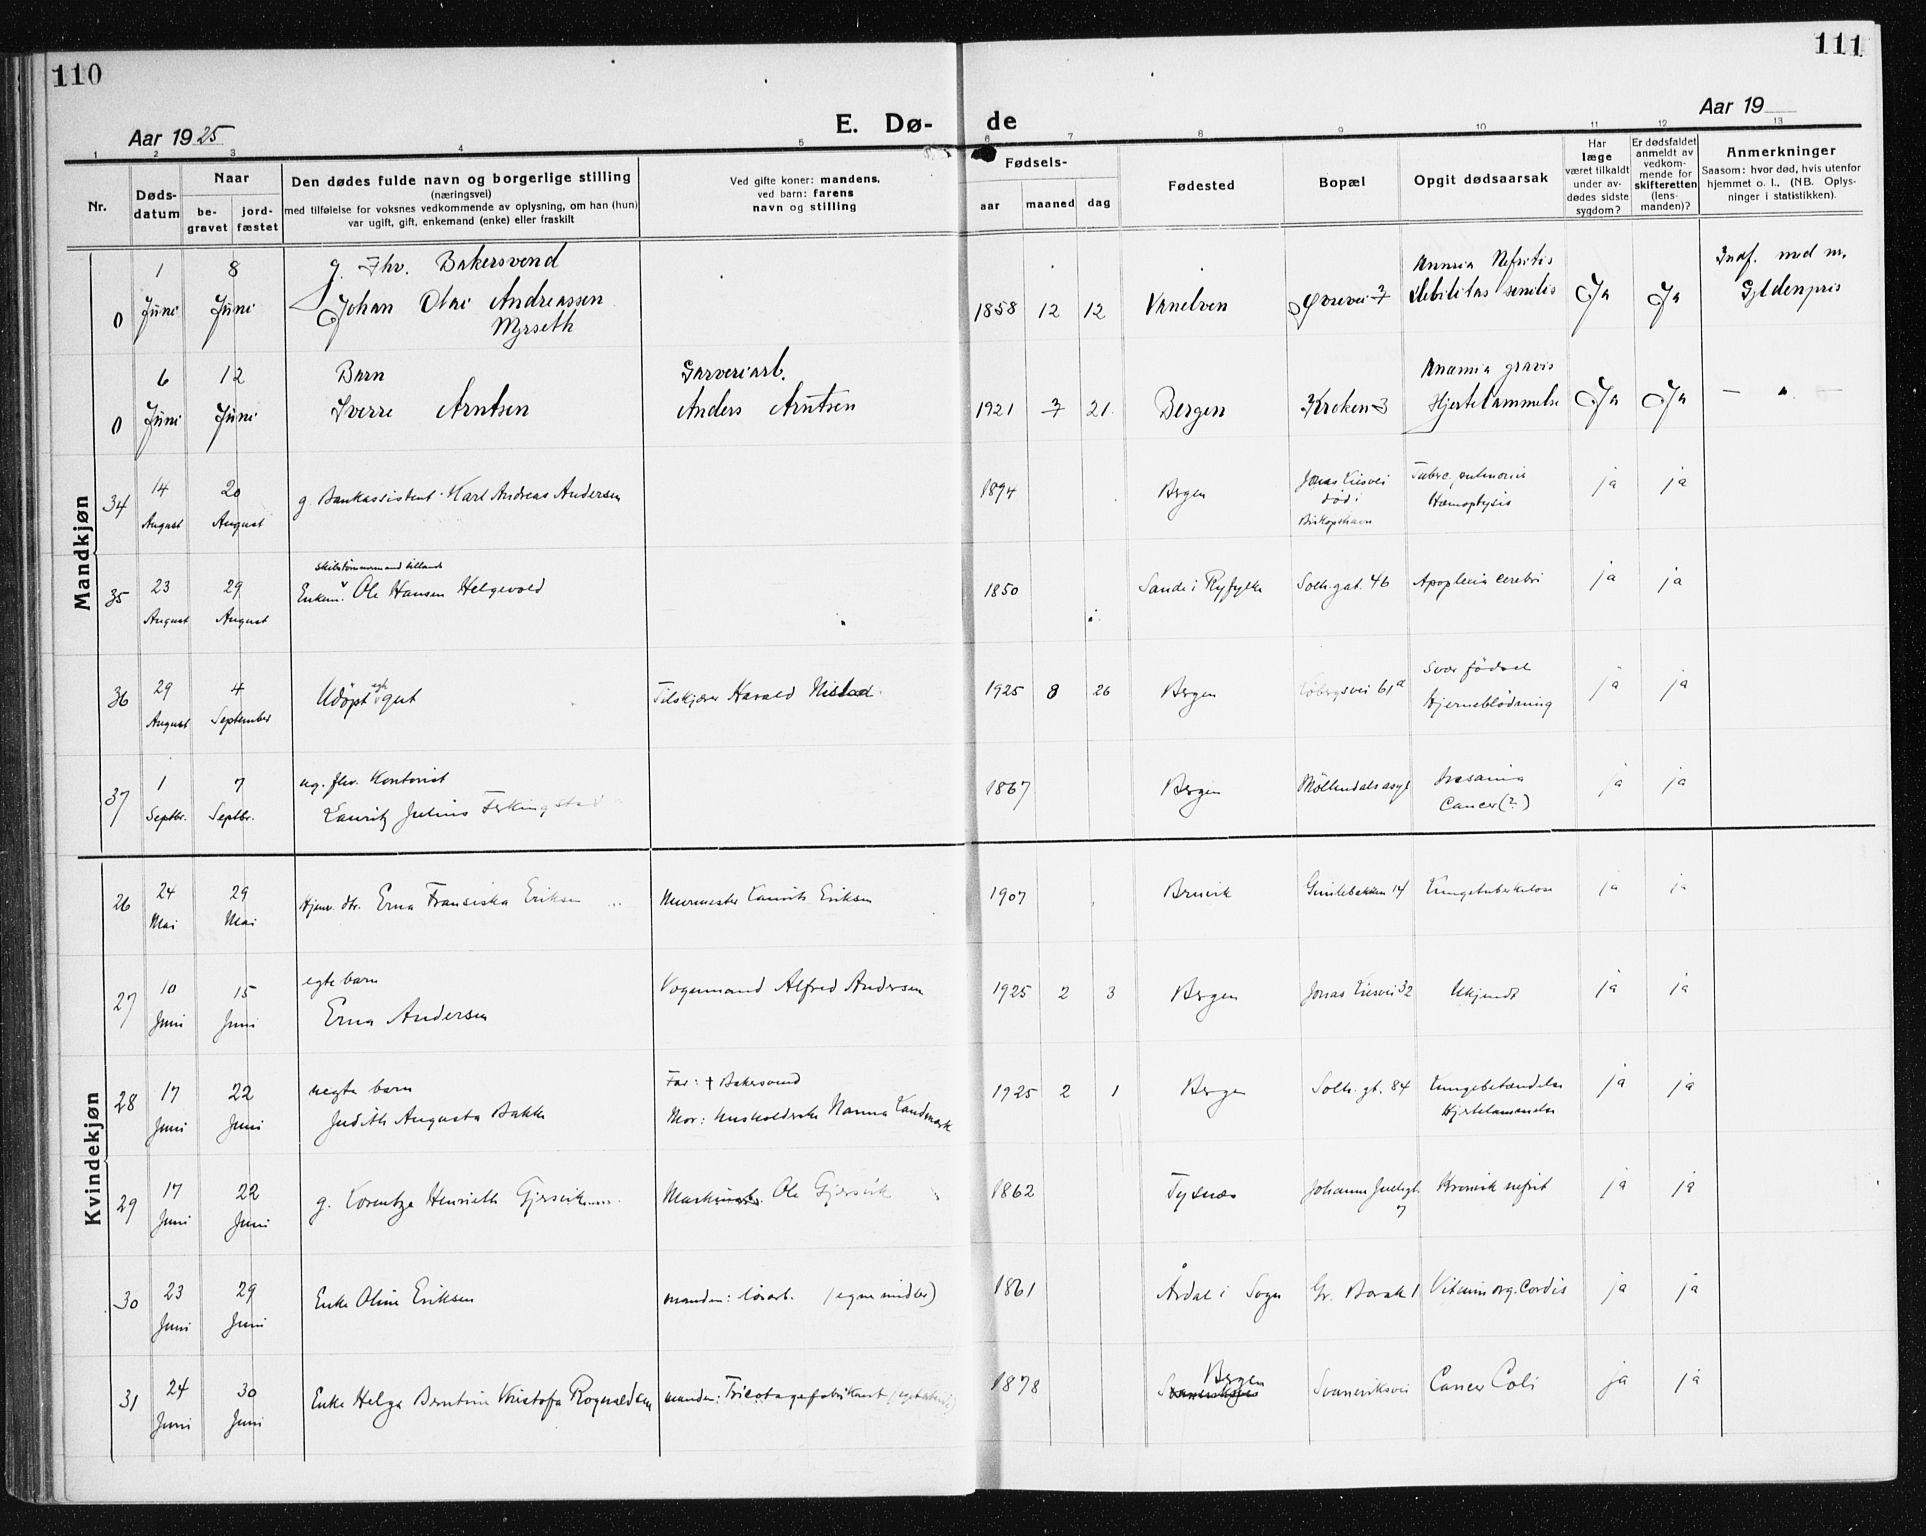 110
111
Aar 1925
E. Dø-
de
Aar 19
1 2 3 4 5 6 7 8 9 10 11 12 13
Nr.
Døds-
datum
Naar
be-
gravet
jord-
fæstet
Den dødes fulde navn og borgerlige stilling
(næringsvei)
med tilføielse for voksnes vedkommende av oplysning, om han (hun)
var ugift, gift, enkemand (enke) eller fraskilt
Ved gifte koner: mandens,
ved barn: farens
navn og stilling
Fødsels-
aar maaned dag
Fødested
Bopæl
Opgit dødsaarsak
Har
læge
været tilkaldt
under av-
dødes sidste
sygdom?
Er dødsfaldet
anmeldt av
vedkom-
mende for
skifteretten
(lens-
manden)?
Anmerkninger
Saasom: hvor død, hvis utenfor
hjemmet o. l., (NB. Oplys-
ninger i statistikken).
Mandkjøn
1 8 g. Fhv. Bakersvend Anæmia Nefritis Indf. med m.
0 Juni Juni Johan Olai Andreassen 1858 12 12 Vanelven Øvrevei 7 debilitas senilis Ja Ja Gyldenpris
Myrseth
6 12 Barn Garveriarb. Anæmia gravis
0 Juni Juni Sverre Arntsen Anders Arntsen 1921 7 21. Bergen Kroken 3 Hjertelammelse Ja Ja — " —
34 14 20 g. Bankassistent Karl Andreas Andersen 1894 Bergen Jonas Liesvei Tuberc. pulmonis ja ja
August August død i Hæmoptysis
Biskopshavn
35 23 29 Enkem. Ole Hansen Helgevold 1850 Sande i Ryfylke Solh.gat. 46 Apoplexia cerebri ja ja
August August
36 29 4 Udøpt egt gut Tilskjærer Harald Nistad 1925 8 26 Bergen Svær fødsel ja ja
August September Hjerneblødning
37 1 7 ug. fhv. Kontorist 1867 Bergen Møllendalsasyl ja ja
Septbr. Septbr. Lauritz Julius Ferkingstad Cancer (?)
Kvindekjøn
26 24 29 Hjemv. dtr. Erna Fransiska Eriksen Murmester Laurits Eriksen 1907 Bruvik Gimlebakken 14 Lungetuberkulose ja ja
Mai Mai
27 10 15 egte barn Vognmand Alfred Andersen 1925 2 3 Bergen Jonas Liesvei 32 Ukjendt ja ja
Juni Juni Erna Andersen
28 17 22 uegte barn Far: † Bakersvend 1925 2 1 Bergen Solh. gt. 84 Lungebetændelse ja ja
Juni Juni Judith Augusta Bakke Mor: Husholderske Nanna Landmark Hjertelammelse
29 17 22 g. Lorentze Henriette Gjersvik Ole Gjersvik 1862 Tysnes Kronisk nefrit ja ja
Juni Juni 7
30 23 29 Enke Oline Eriksen manden: løsarb. 1861 Årdal i Sogn Vitium org. cordis ja ja
Juni Juni
31 24 30 Enke Helga Berntine Kristofa Rognaldsen manden: Tricotagefabrikant 1878 Bergen Svaneviksvei Cancer Coli ja ja
Juni Juni